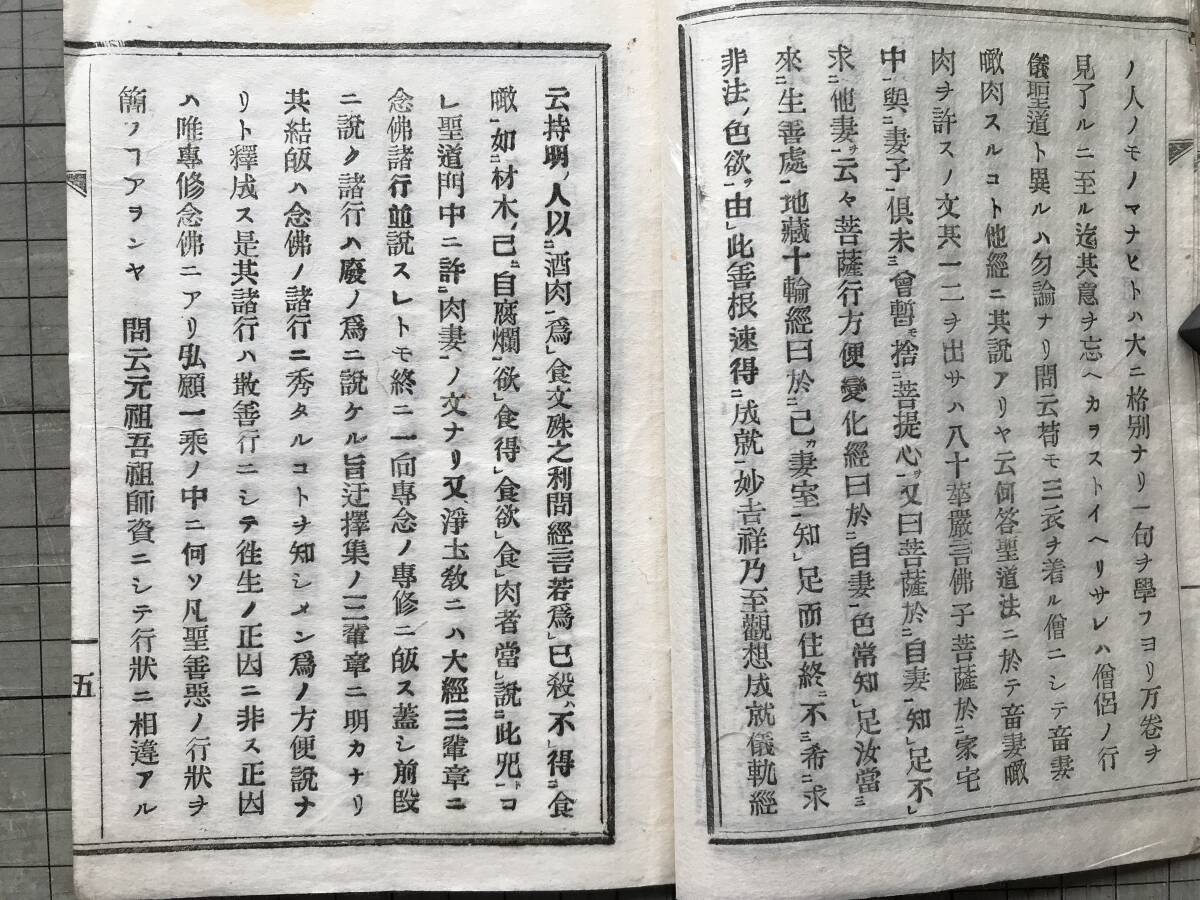 ノ人ノモノマナヒトハ大ニ格別ナリ一句ヲ學フヨリ万卷ヲ
見了ルニ至ル迄其意ヲ忘ヘカラストイヘリサレハ僧侶ノ行
儀聖道ト異ルハ勿論ナリ問云苟モ三衣ヲ着ル僧ニシテ畜妻
噉肉スルコト他經ニ其説アリヤ云何答聖道法ニ於テ畜妻噉
肉ヲ許スノ文其一二ヲ出サハ八十華嚴言佛子菩薩於家宅
中與妻子俱未曾暫捨菩提心又曰菩薩於自妻知足不
求他妻云々菩薩行方便變化經曰於自妻色常知足汝當
來生善處地藏十輪經曰於己妻室知足而住終不希求
非法色欲由此善根速得成就妙吉祥乃至觀想成就儀軌經
云持明人以酒肉爲食文殊之利問經言若爲已殺不得食
噉如材木己自腐爛欲食得食欲食肉者當說此咒コ
レ聖道門中ニ許肉妻ノ文ナリ又淨土敎ニハ大經三輩章ニ
念佛諸行並説スレトモ終ニ一向專念ノ專修ニ皈ス蓋シ前段
ニ説ク諸行ハ廢ノ爲ニ説ケル旨迂擇集ノ三輩章ニ明カナリ
其結皈ハ念佛ノ諸行ニ秀タルコトヲ知シメン爲ノ方便説ナ
リト釋成ス是其諸行ハ散善行ニシテ徃生ノ正因ニ非ス正因
ハ唯專修念佛ニアリ弘願一乘ノ中ニ何ソ凡聖善惡ノ行狀ヲ
簡フヿアランヤ 問云元祖吾祖師資ニシテ行狀ニ相違アル
五